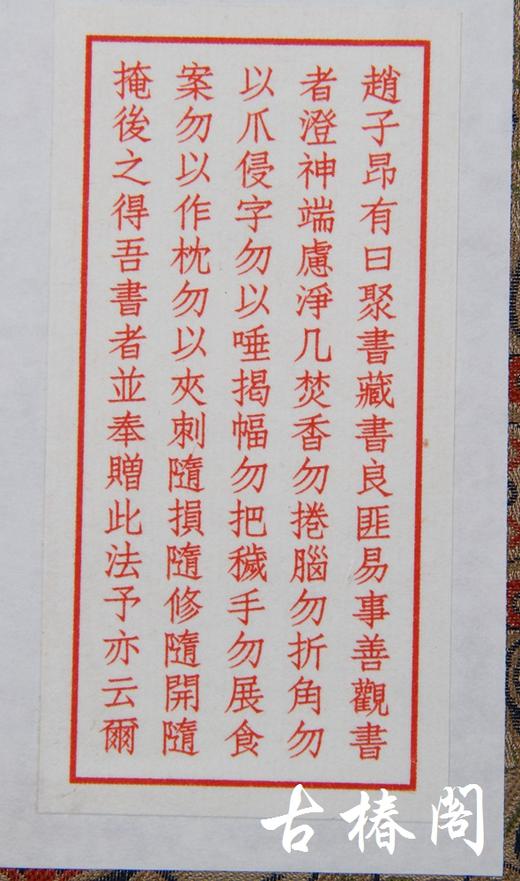 趙子昂有曰聚書藏書良匪易事善觀書
者澄神端慮淨几焚香勿捲腦勿折角勿
以爪侵字勿以唾揭幅勿把穢手勿展食
案勿以作枕勿以夾刺隨損隨修隨開隨
掩後之得吾書者並奉贈此法予亦云爾
古椿閣